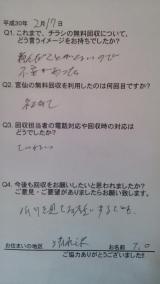 平成30年 2月17日
Q1. これまで、チラシの無料回収について、
どう言うイメージをお持ちでしたか?
頼んだことがないので
不安があった
Q2. 宮仙の無料回収を利用したのは何回目ですか?
初めて
Q3. 回収担当者の電話対応や回収時の対応は
どうでしたか?
ていねい
Q4. 今後も回収をお願いしたいと思われましたか?
ご意見・ご要望がありましたらお願い致します。
お住まいの地区
お名前 T.O
ご協力ありがとうございました!!